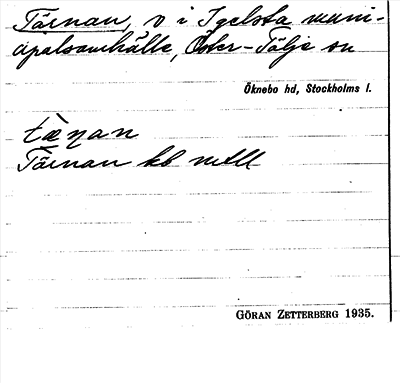 Tärnan, v i Igelsta muni-
cipalsamhälle, Öster-Tälje sn
Öknebo hd, Stockholms l.
tæ̀ɳan
Tärnan kb mtll
GÖRAN ZETTERBERG 1935.